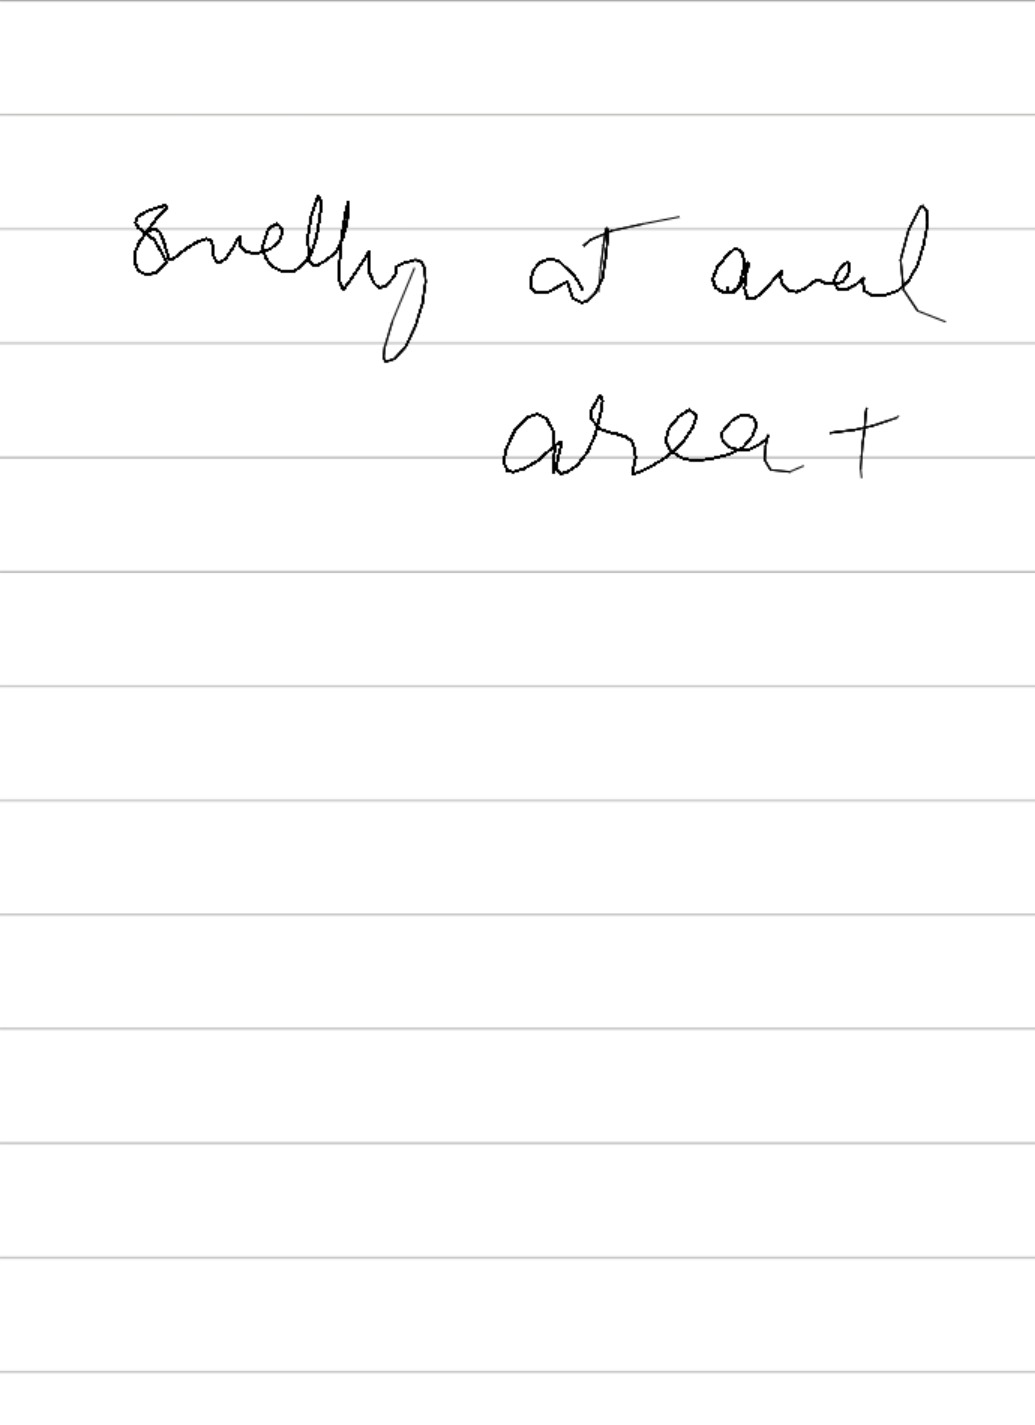 Swelling at anal
area +